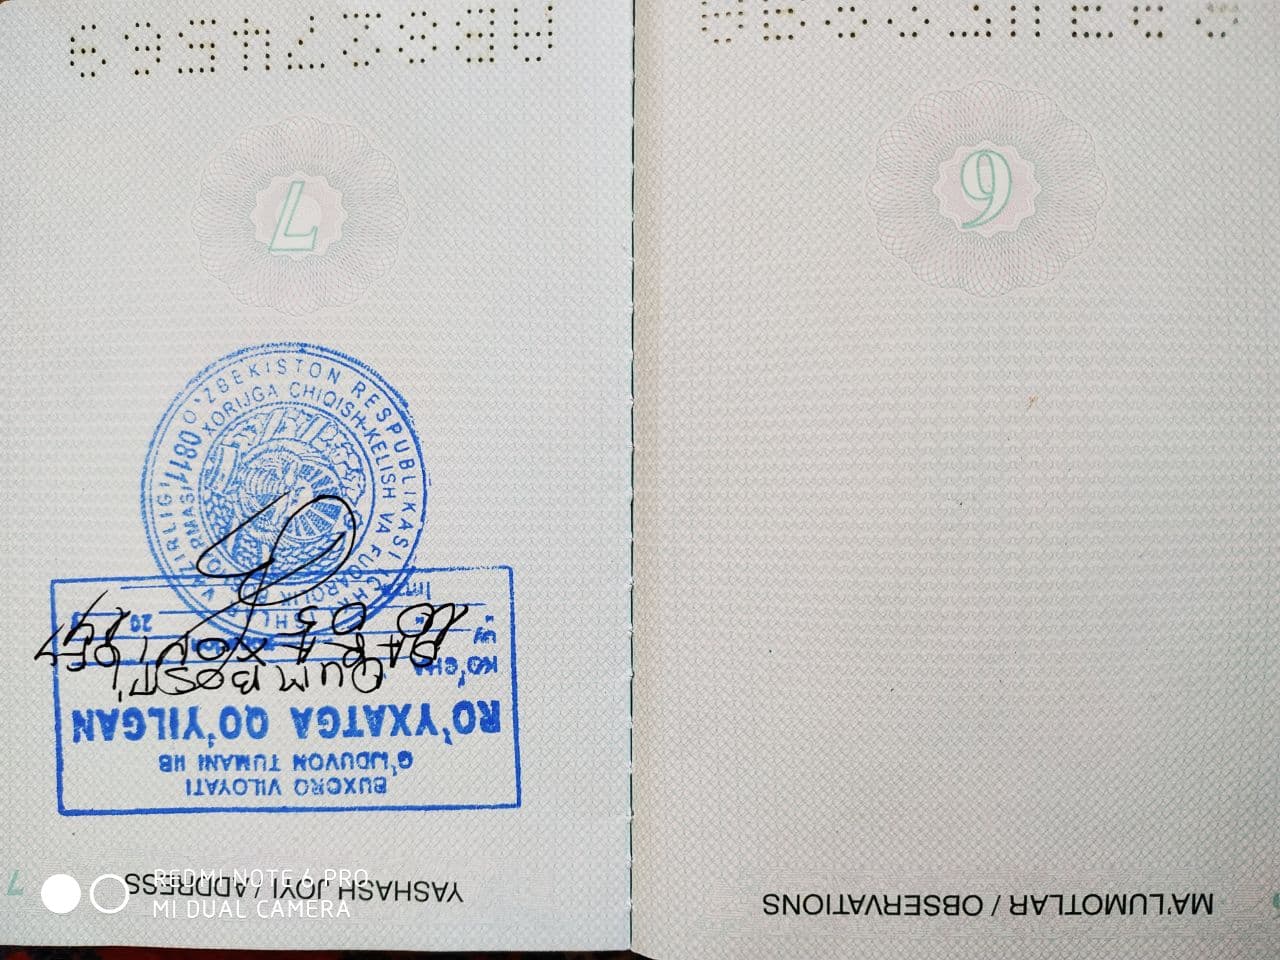 MA'LUMOTLAR / OBSERVATIONS
6
YASHASH JOYI / ADDRESS
7
REDMI NOTE 6 PRO
MI DUAL CAMERA
BUXORO VILOYATI
G'IJDUVON TUMANI IIB
RO'YXATGA QO'YILGAN
KO'CHA QUMBOSTI
UY
10 05 20
Imzo
O'ZBEKISTON RESPUBLIKASI ICHKI ISHLAR VAZIRLIGI
XORIJGA CHIQISH-KELISH VA FUQAROLIK BOSHQARMASI
0811
7
AB8274569